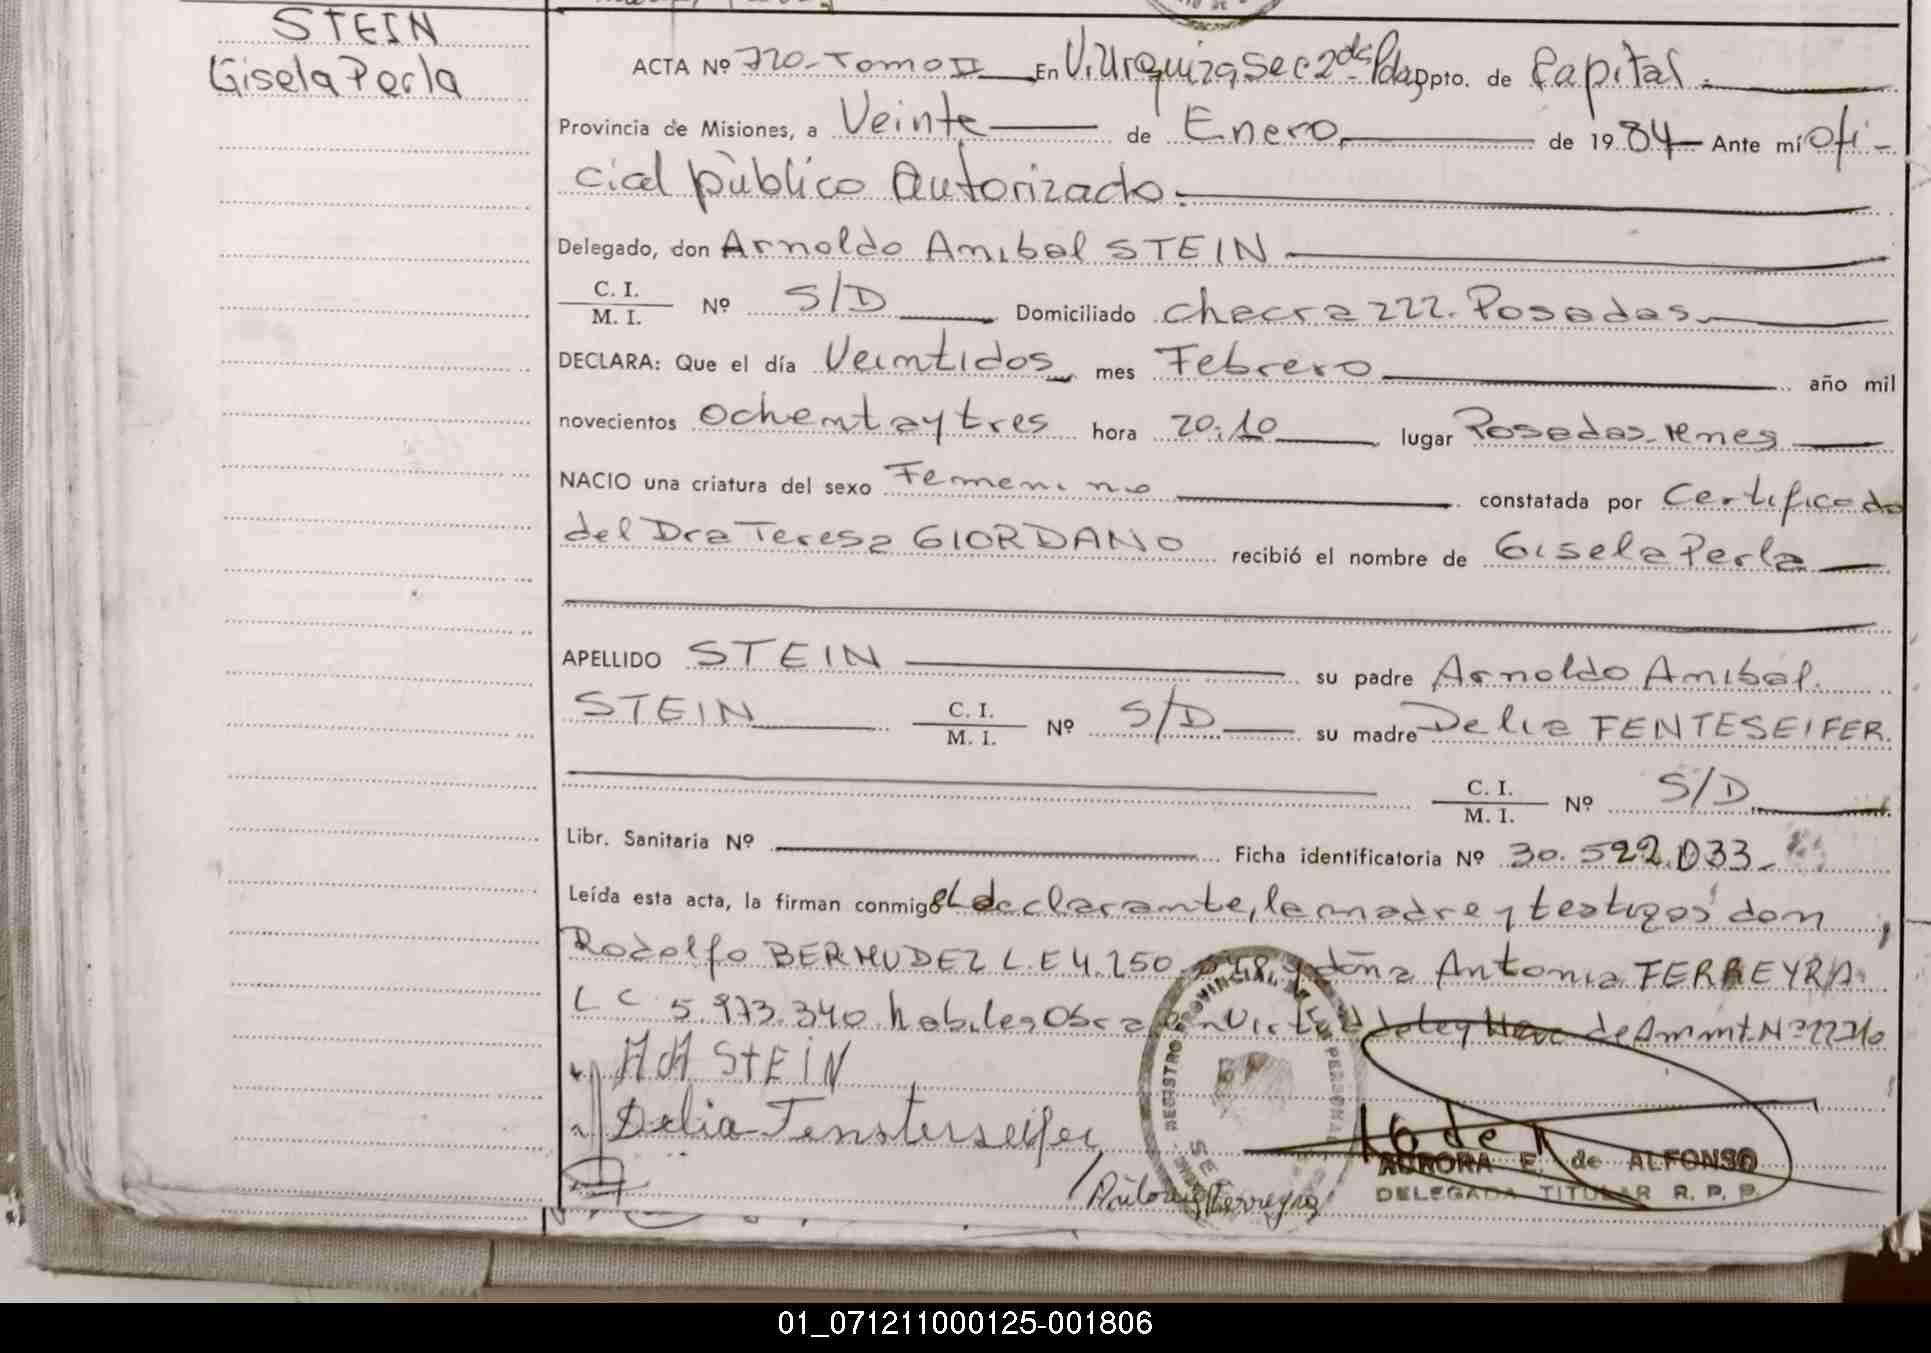 STEIN
Gisela Perla
ACTA Nº 720-Tomo II En V.Urquiza, Sec 2da Pdas Dpto. de Capital.
Provincia de Misiones, a Veinte de Enero, de 1984 Ante mí Ofi-
cial pùblico Autorizado.
Delegado, don Arnoldo Anibal STEIN
C. I.
M. I. Nº S/D Domiciliado checra 222. Posadas
DECLARA: Que el día Veintidos mes Febrero año mil
novecientos ochenta y tres hora 20:10 lugar Posadas
NACIO una criatura del sexo Femenino constatada por Certificado
del Dra Teresa GIORDANO recibió el nombre de Gisela Perla
APELLIDO STEIN su padre Arnoldo Anibal
STEIN C. I.
M. I. Nº S/D su madre Delia FENTESEIFER.
C. I.
M. I. Nº S/D
Libr. Sanitaria Nº Ficha identificatoria Nº 30.522.033.
Leída esta acta, la firman conmigo el declarante, la madre y testigos don
Rodolfo BERMUDEZ L.E 4.250. y doña Antonia FERREYRA
L C 5.973.340 habiles Obra en virtud de ley Nac de Amnt. Nº
AA STEIN
Delia Fensterseifer
Antonia Ferreyra
REGISTRO PROVINCIAL DE LAS PERSONAS
AURORA E. de ALFONSO
DELEGADA TITULAR R. P. P.
01_071211000125-001806